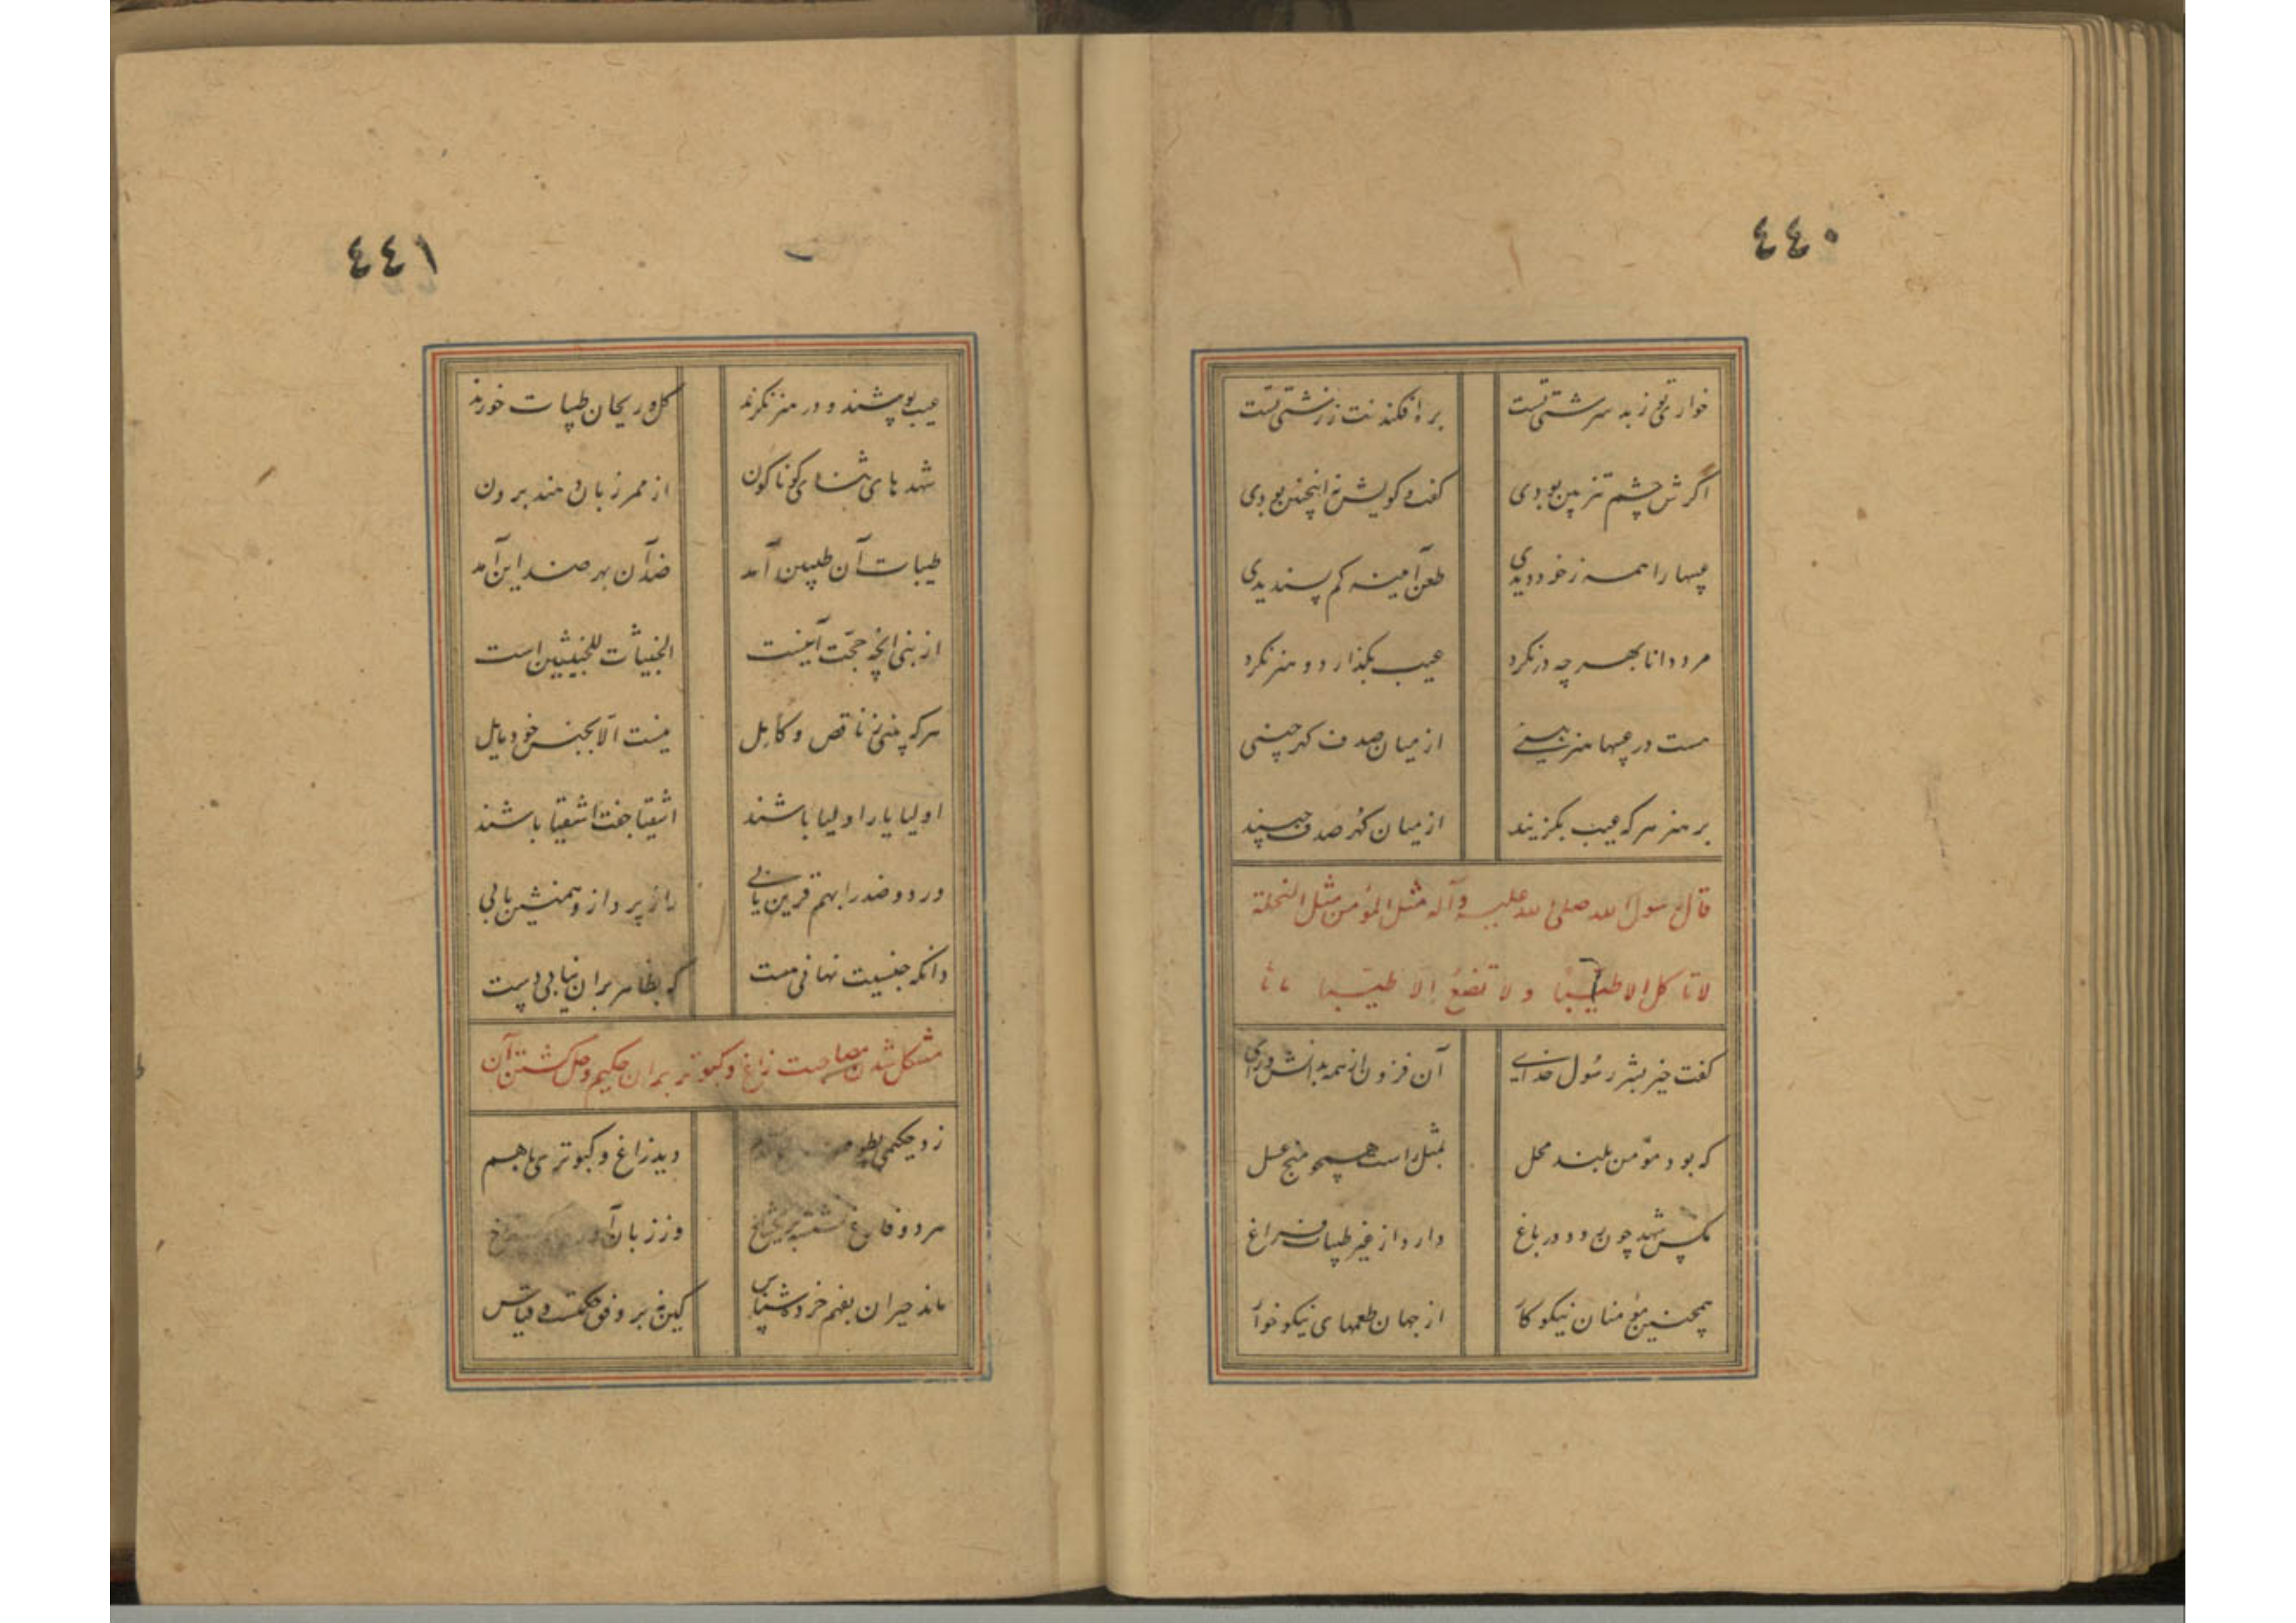 ٤٤٠
خواری تو ز بد سرشتی تست
بره افکندنت ز زشتی تست
اگرش چشم تیز بین بودی
گفت و گویش نه اینچنین بودی
عیبها را همه ز خود دیدی
طعن آیینه کم پسندیدی
مرد دانا بهر چه در نگرد
عیب بگذارد و هنر نگرد
هست در عیبها هنر بینی
از میان صدف گهر چینی
بر هنر هر که عیب بگزیند
از میان گهر صدف چیند
قال رسول الله صلی الله علیه وآله مثل المؤمن مثل النحلة
لا تاکل الا طیبا ولا تضع الا طیبا
گفت خیر بشر رسول خدای
آن فزون از همه بدانش و رای
که بود مؤمن بلند محل
بمثل راست همچو منج عسل
مگس شهد چون بود در باغ
دارد از غیر طیبات فراغ
همچنین مؤمنان نیکو کار
از جهان طعمهای نیکو خوار
٤٤١
عیب پوشند و در هنر نگرند
گل و ریحان طیبات خورند
شهدهای ثنای گوناگون
از ممر زبان دهند برون
طیبات آن طیبین آمد
ضد آن بهر ضد این آمد
از نبی آنچه حجت آیینست
الخبیثات للخبیثین است
هر که بینی ز ناقص و کامل
نیست الا بجنس خود مایل
اولیا یار اولیا باشند
اشقیا جفت اشقیا باشند
ور دو ضد را بهم قرین یابی
راز پرداز و همنشین یابی
دانکه جنسیت نهانی هست
که بظاهر بران نیابی دست
مشکل شدن مصاحبت زاغ و کبوتر بران حکیم و حل گشتن آن
زد حکیمی بطوف
دید زاغ و کبوتری باهم
هر دو فارغ نشسته بر یک شاخ
وز زبان آوری
ماند حیران بفهم خرده شناس
کین نه بر وفق حکمت و قیاس